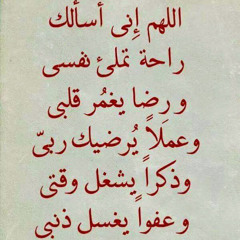 اللهم إِنى أسألك
راحة تملئ نفسى
و رضا يغمُر قلبى
وعملاً يُرضيك ربىّ
وذكراً يشغل وقتى
وعفواً يغسل ذنبى